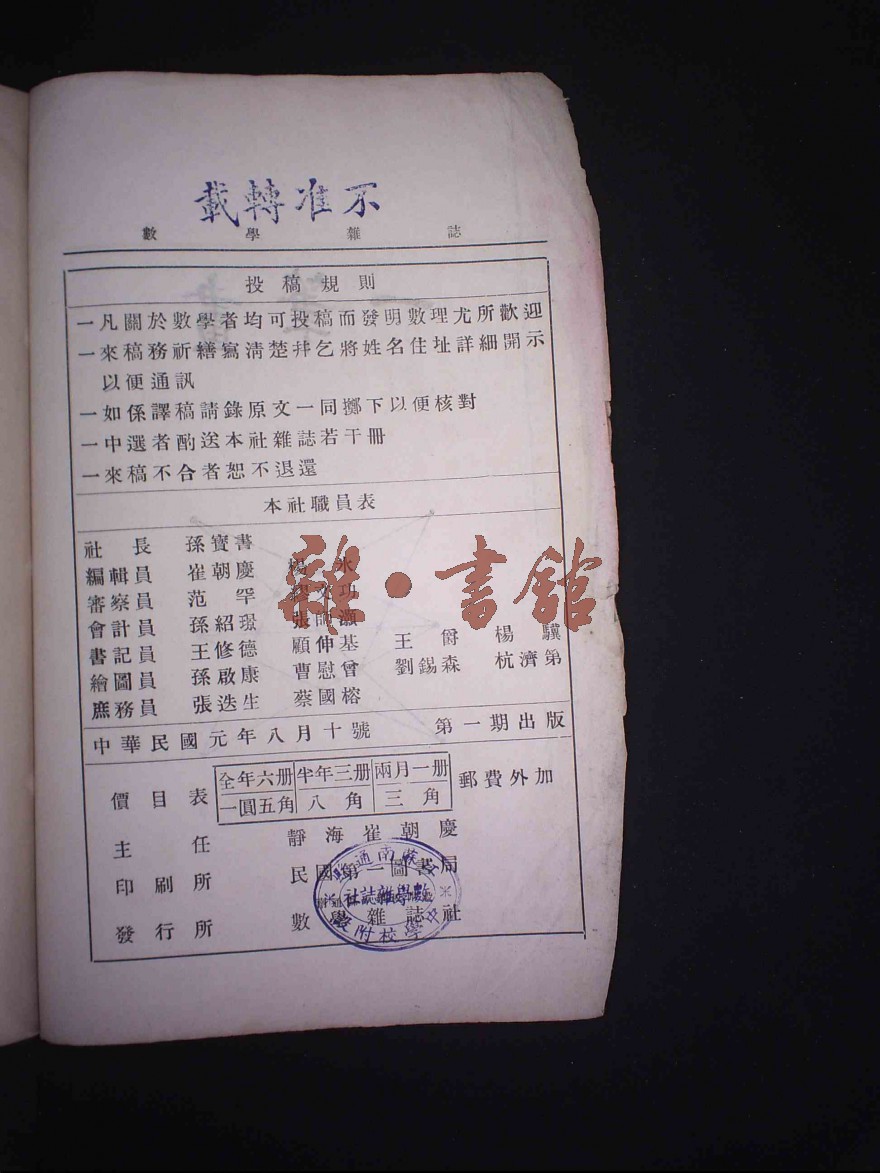 不准轉載
數學雜誌
投稿規則
一凡關於數學者均可投稿而發明數理尤所歡迎
一來稿務祈繕寫清楚幷乞將姓名住址詳細開示
以便通訊
一如係譯稿請錄原文一同擲下以便核對
一中選者酌送本社雜誌若干冊
一來稿不合者恕不退還
本社職員表
社長 孫寶書
編輯員 崔朝慶 楊冰
審察員 范罕
會計員 孫紹璟 張
書記員 王修德 顧伸基 王爵 楊驥
繪圖員 孫啟康 曹慰曾 劉錫森 杭濟第
庶務員 張迭生 蔡國榕
雜·書館
中華民國元年八月十號 第一期出版
價目表 全年六册 半年三册 兩月一册 郵費外加
一圓五角 八角 三角
主任 靜海崔朝慶
印刷所 民國第一圖書局
發行所 數學雜誌社
蘇南通
數學雜誌社
學校附設